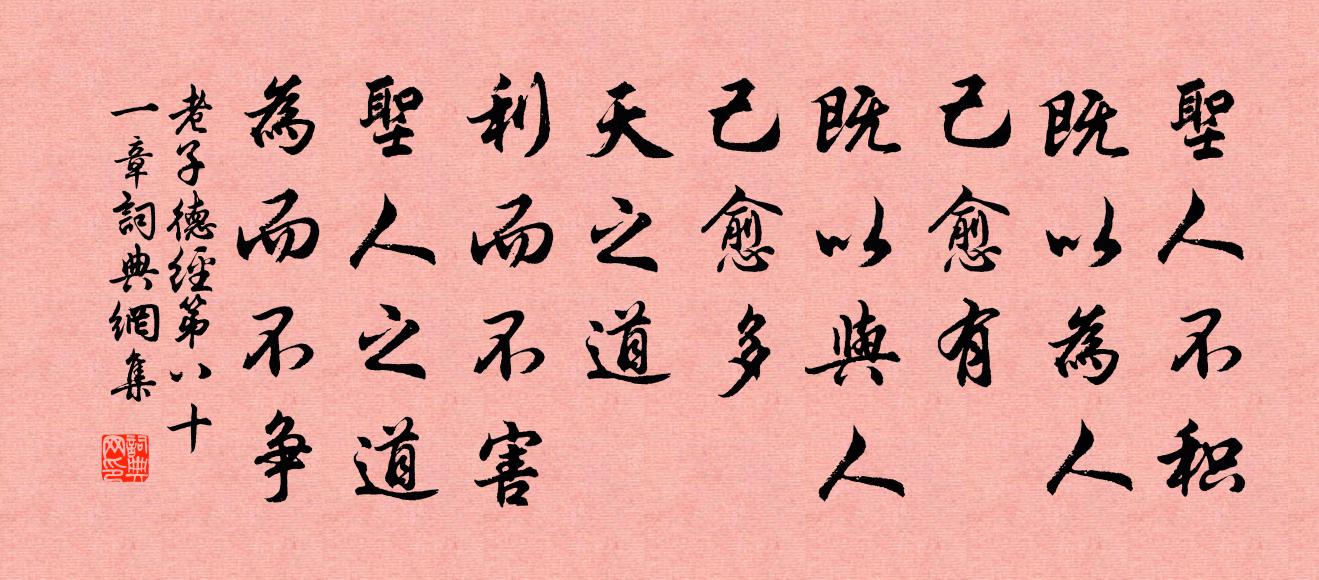 聖人不积
既以為人
己愈有
既以與人
己愈多
天之道
利而不害
聖人之道
為而不争
老子德經第八十
一章詞典網集
詞典
网印